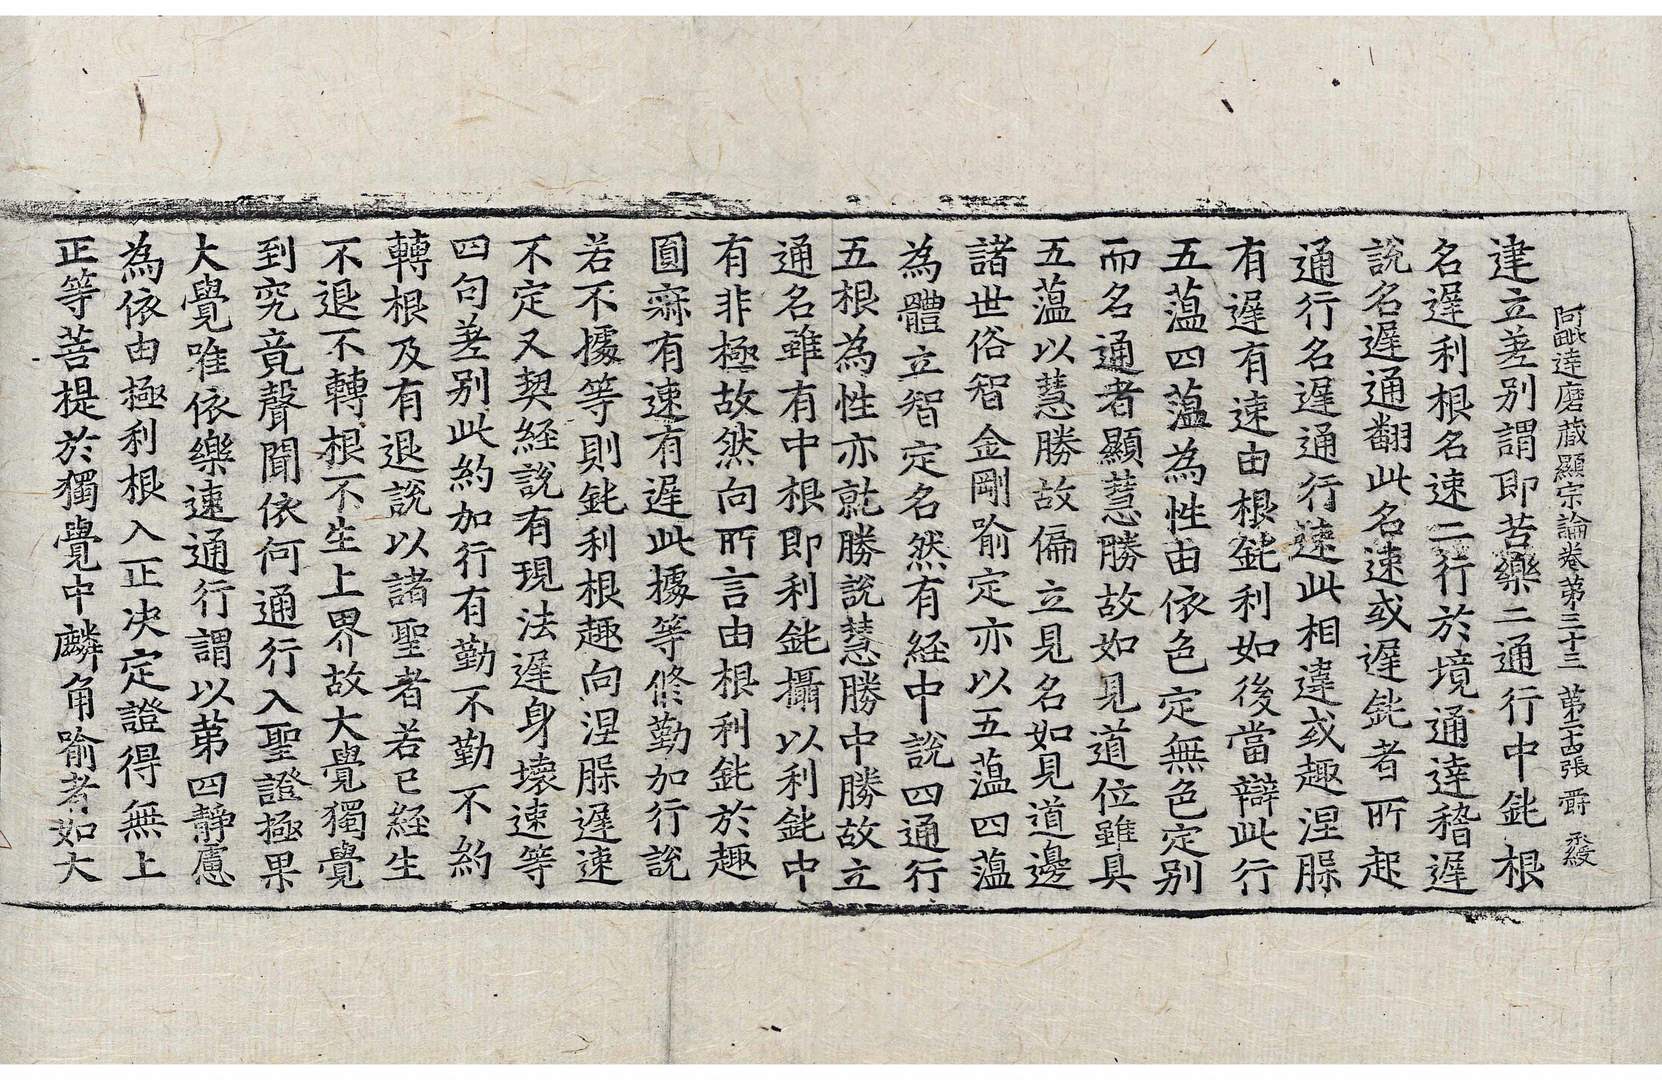 阿毗達磨藏顯宗論卷第三十三 第二十四張 爵 
建立差別謂即苦樂二通行中鈍根
名遲利根名速二行於境通達稽遲
說名遲通翻此名速或遲鈍者所起
通行名遲通行速此相違或趣涅槃
有遲有速由根鈍利如後當辯此行
五蘊四蘊為性由依色定無色定別
而名通者顯慧勝故如見道位雖具
五蘊以慧勝故偏立見名如見道邊
諸世俗智金剛喻定亦以五蘊四蘊
為體立智定名然有經中說四通行
五根為性亦就勝說慧勝中勝故立
通名雖有中根即利鈍攝以利鈍中
有非極故然向所言由根利鈍於趣
圓寂有速有遲此據等修勤加行說
若不據等則鈍利根趣向涅槃遲速
不定又契經說有現法遲身壞速等
四句差別此約加行有勤不勤不約
轉根及有退說以諸聖者若已經生
不退不轉根不生上界故大覺獨覺
到究竟聲聞依何通行入聖證極果
大覺唯依樂速通行謂以第四靜慮
為依由極利根入正決定證得無上
正等菩提於獨覺中麟角喻者如大